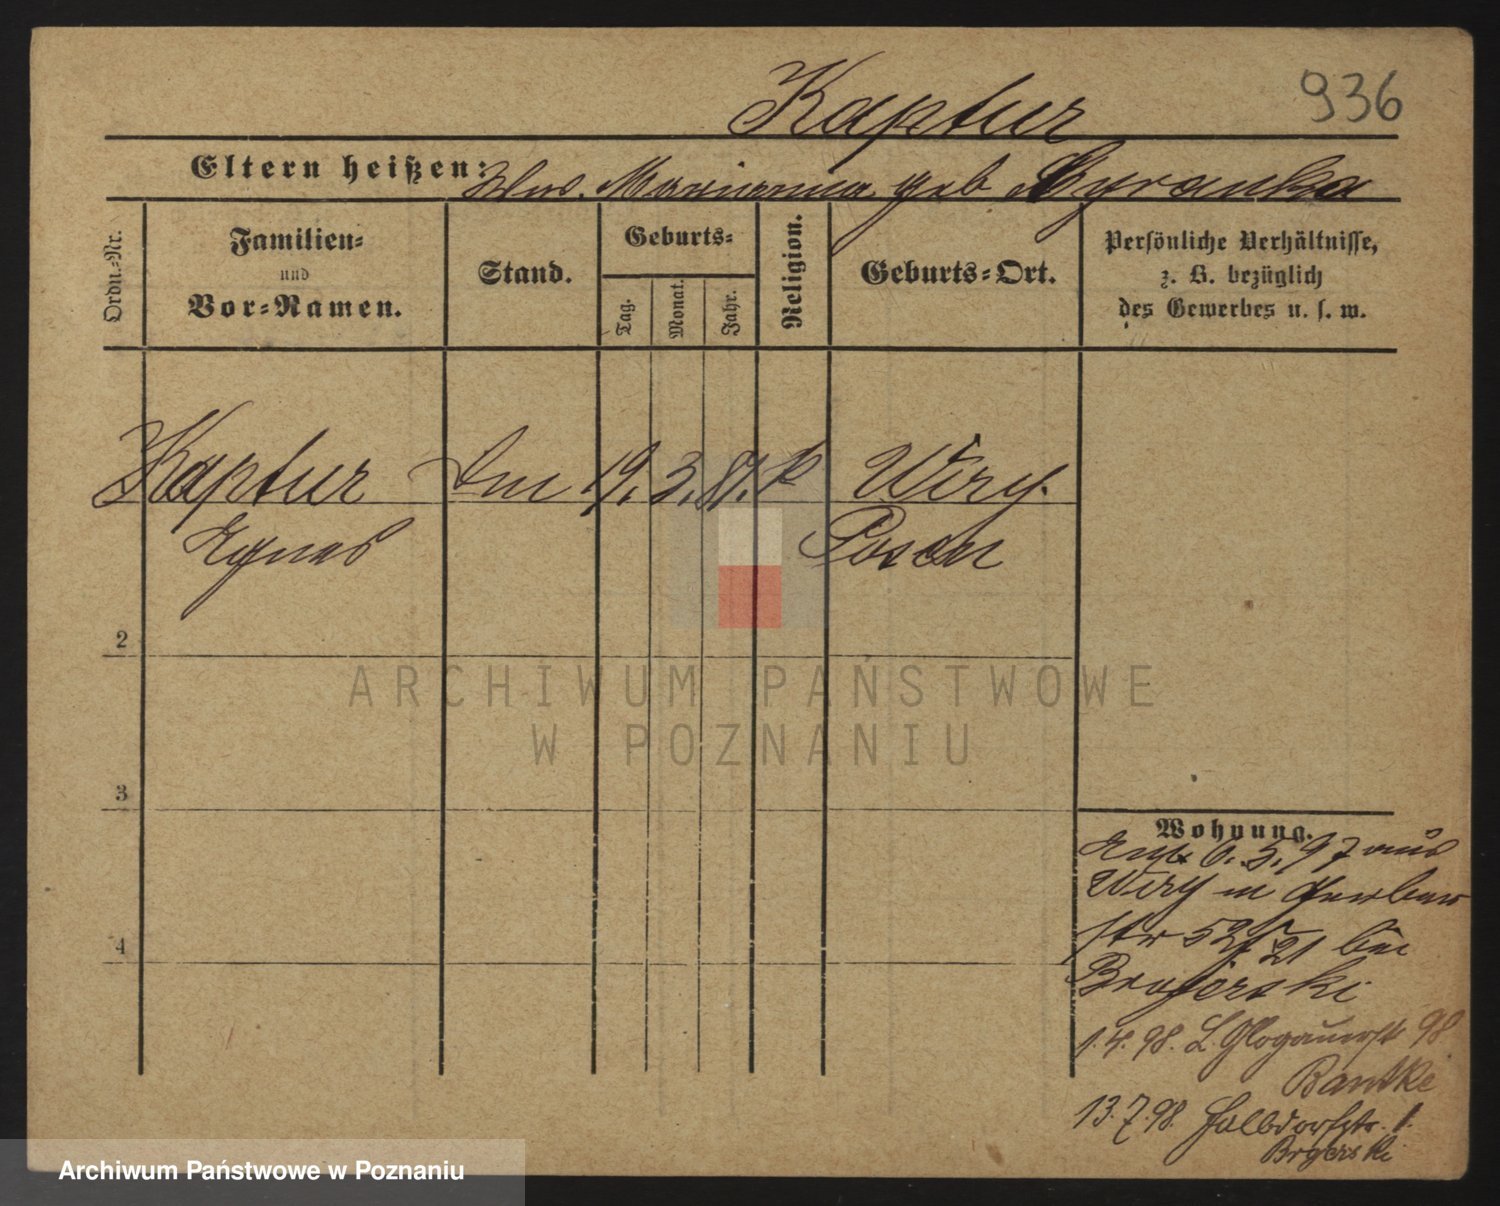 936
Kaptur
Eltern heißen: Marianna geb Cyranka
Ordn.-Nr.
Familien-
und
Vor-Namen.
Stand.
Geburts-
Tag.
Monat.
Jahr.
Religion.
Geburts-Ort.
Persönliche Verhältnisse,
z. B. bezüglich
des Gewerbes u. s. w.
Kaptur 19. 3. 81. k Wiry.
Agnes Posen
2
3
4
ARCHIWUM PAŃSTWOWE
W POZNANIU
Wohnung.
6. 5. 97 aus
Wiry in Gerber
str 52 bei
1.4.98. L. Glogauerstr 98
Bantke
13.7.98. Halbdorfstr. 1.
Archiwum Państwowe w Poznaniu